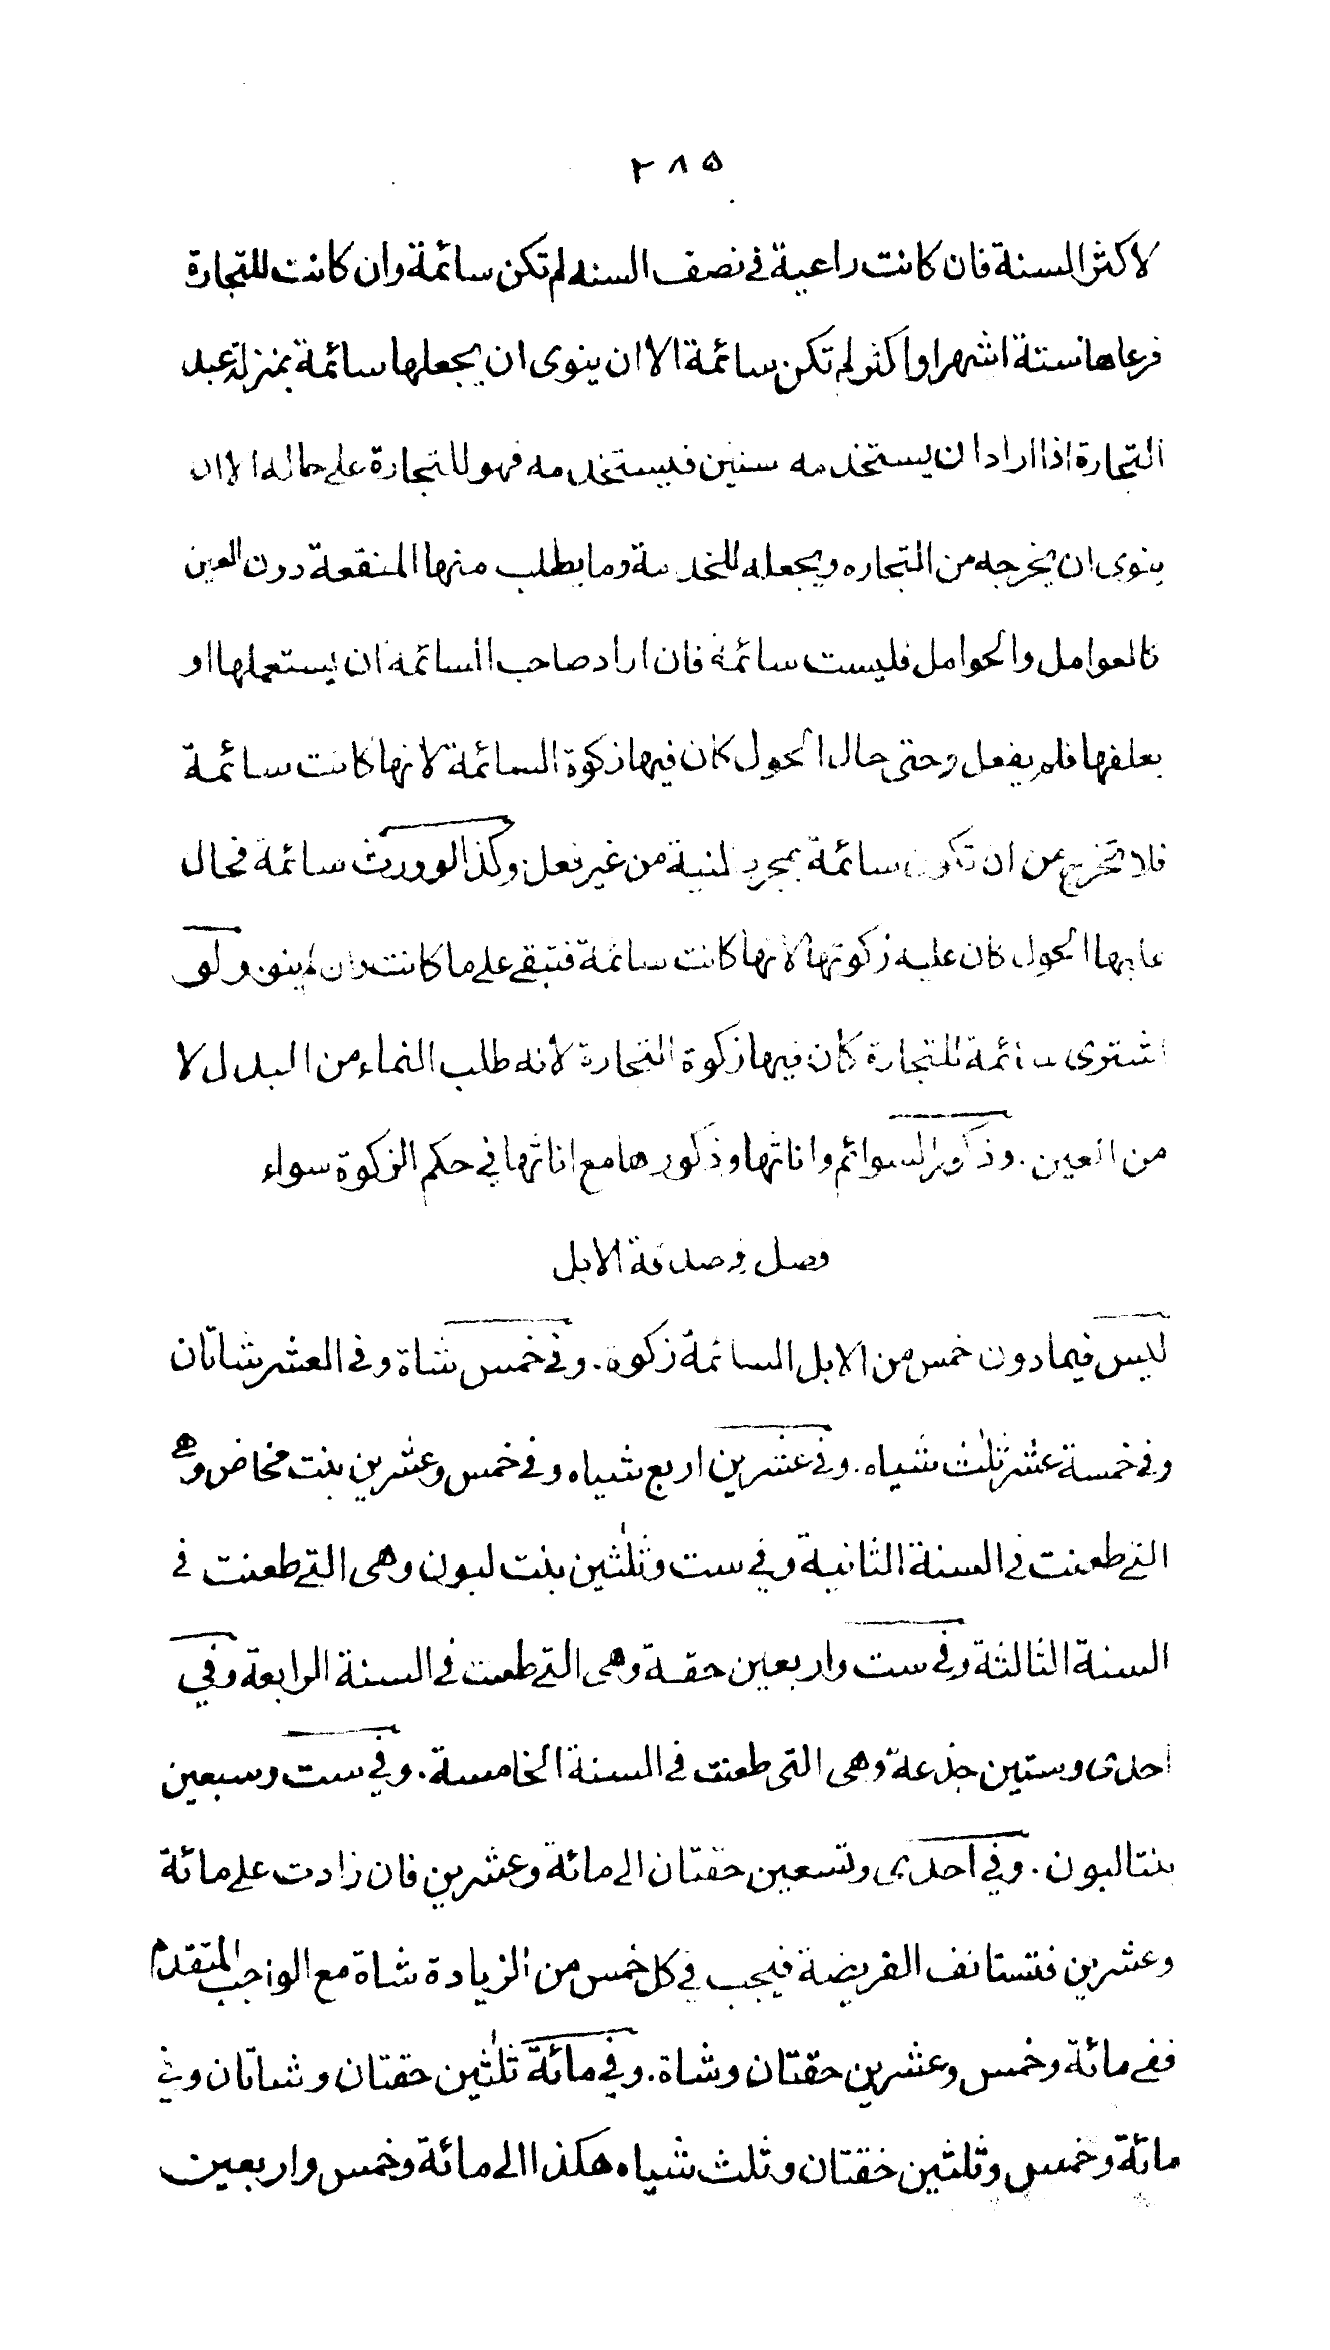 ۲۸۵
لاكثر السنة فان كانت راعية في نصف السنه لم تكن سائمة وان كانت للتجارة
فرعاها ستة اشهر او اكثر لم تكن سائمة الا ان ينوى ان يجعلها سائمة بمنزلة عبد
التجارة اذا اراد ان يستخدمه سنين فيستخدمه فهو للتجارة على حاله الا ان
ينوى ان يخرجه من التجاره ويجعله للخدمة وما يطلب منها المنفعة دون العين
كالعوامل والحوامل فليست سائمة فان اراد صاحب السائمة ان يستعملها او
يعلفها فلم يفعل وحتى حال الحول كان فيها زكوة السائمة لانها كانت سائمة
فلا تخرج عن ان تكون سائمة بمجرد النية من غير فعل وكذا لو ورث سائمة فحال
عليها الحول كان عليه زكوتها لانها كانت سائمة فتبقى على ما كانت وان لم ينو ولو
اشترى سائمة للتجارة كان فيها زكوة التجارة لانه طلب النماء من البدل لا
من العين. وذكور السوائم واناثها وذكورها مع اناثها في حكم الزكوة سواء
فصل في صدقة الابل
ليس فيما دون خمس من الابل السائمة زكوة. وفي خمس شاة وفي العشر شاتان
وفي خمسة عشر ثلٰث شياه. وفي عشرين اربع شياه وفي خمس وعشرين بنت مخاض وهى
التي طعنت في السنة الثانية وفي ست وثلٰثين بنت لبون وهى التي طعنت في
السنة الثالثة وفي ست واربعين حقة وهى التي طعنت في السنة الرابعة وفي
احدى وستين جذعة وهى التى طعنت في السنة الخامسة. وفي ست وسبعين
بنتا لبون. وفي احدى وتسعين حقتان الى مائة وعشرين فان زادت على مائة
وعشرين فتستانف الفريضة فيجب في كل خمس من الزيادة شاة مع الواجب المتقدم
ففي مائة وخمس وعشرين حقتان وشاة. وفي مائة ثلٰثين حقتان وشاتان وفي
مائة وخمس وثلثين حقتان وثلث شياه هكذا الى مائة وخمس واربعين